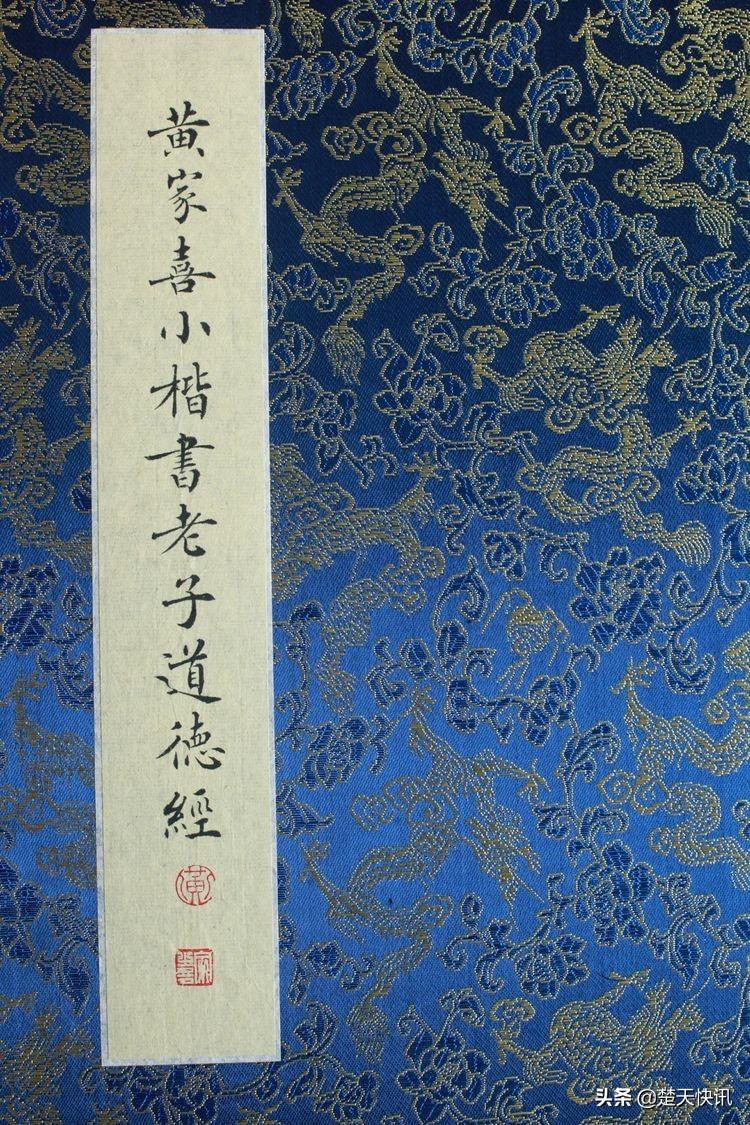 黄家喜小楷書老子道德經
黃
家喜
头条 @楚天快讯